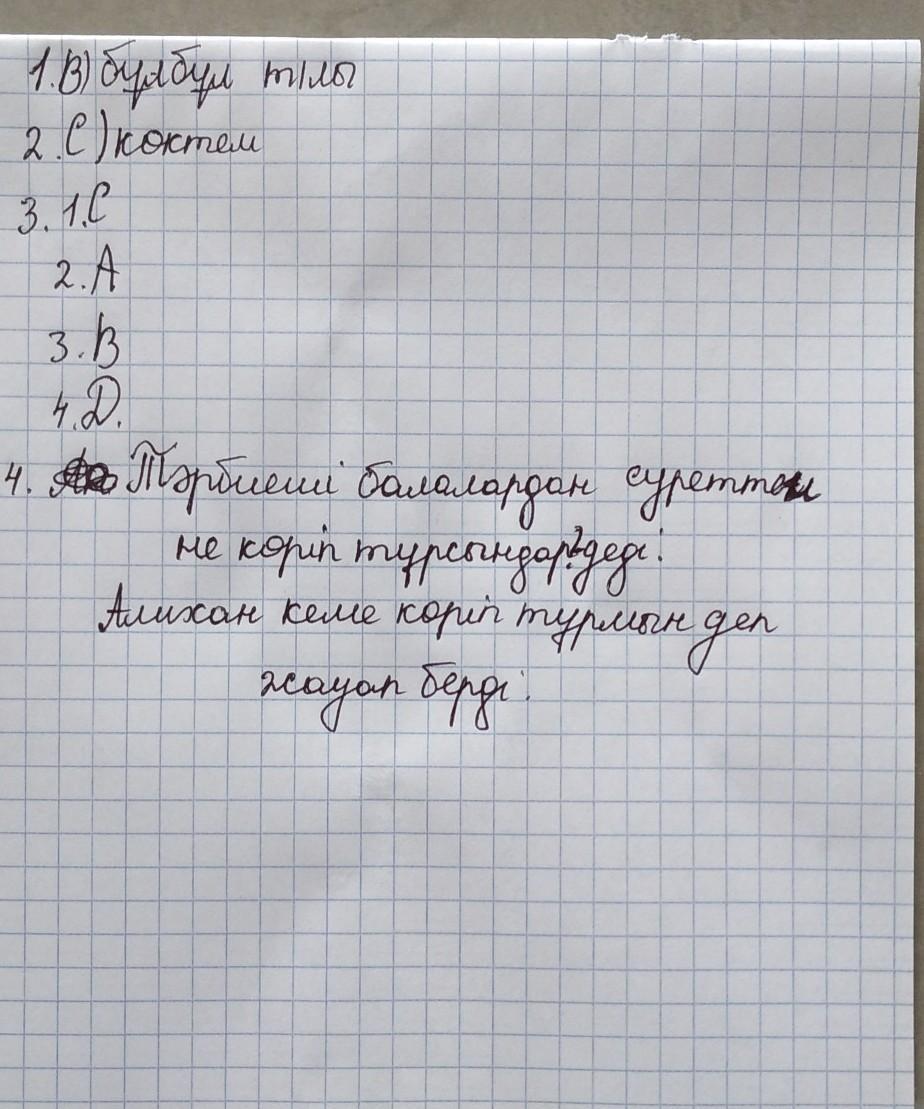 1.В) бұлбұл тілы
2.С) көктем
3. 1.С
2.А
3.В
4.D.
4. Тәрбиеші балалардан суреттен
не көріп тұрсыңдар? деді.
Алихан кеме көріп тұрмын деп
жауап берді.